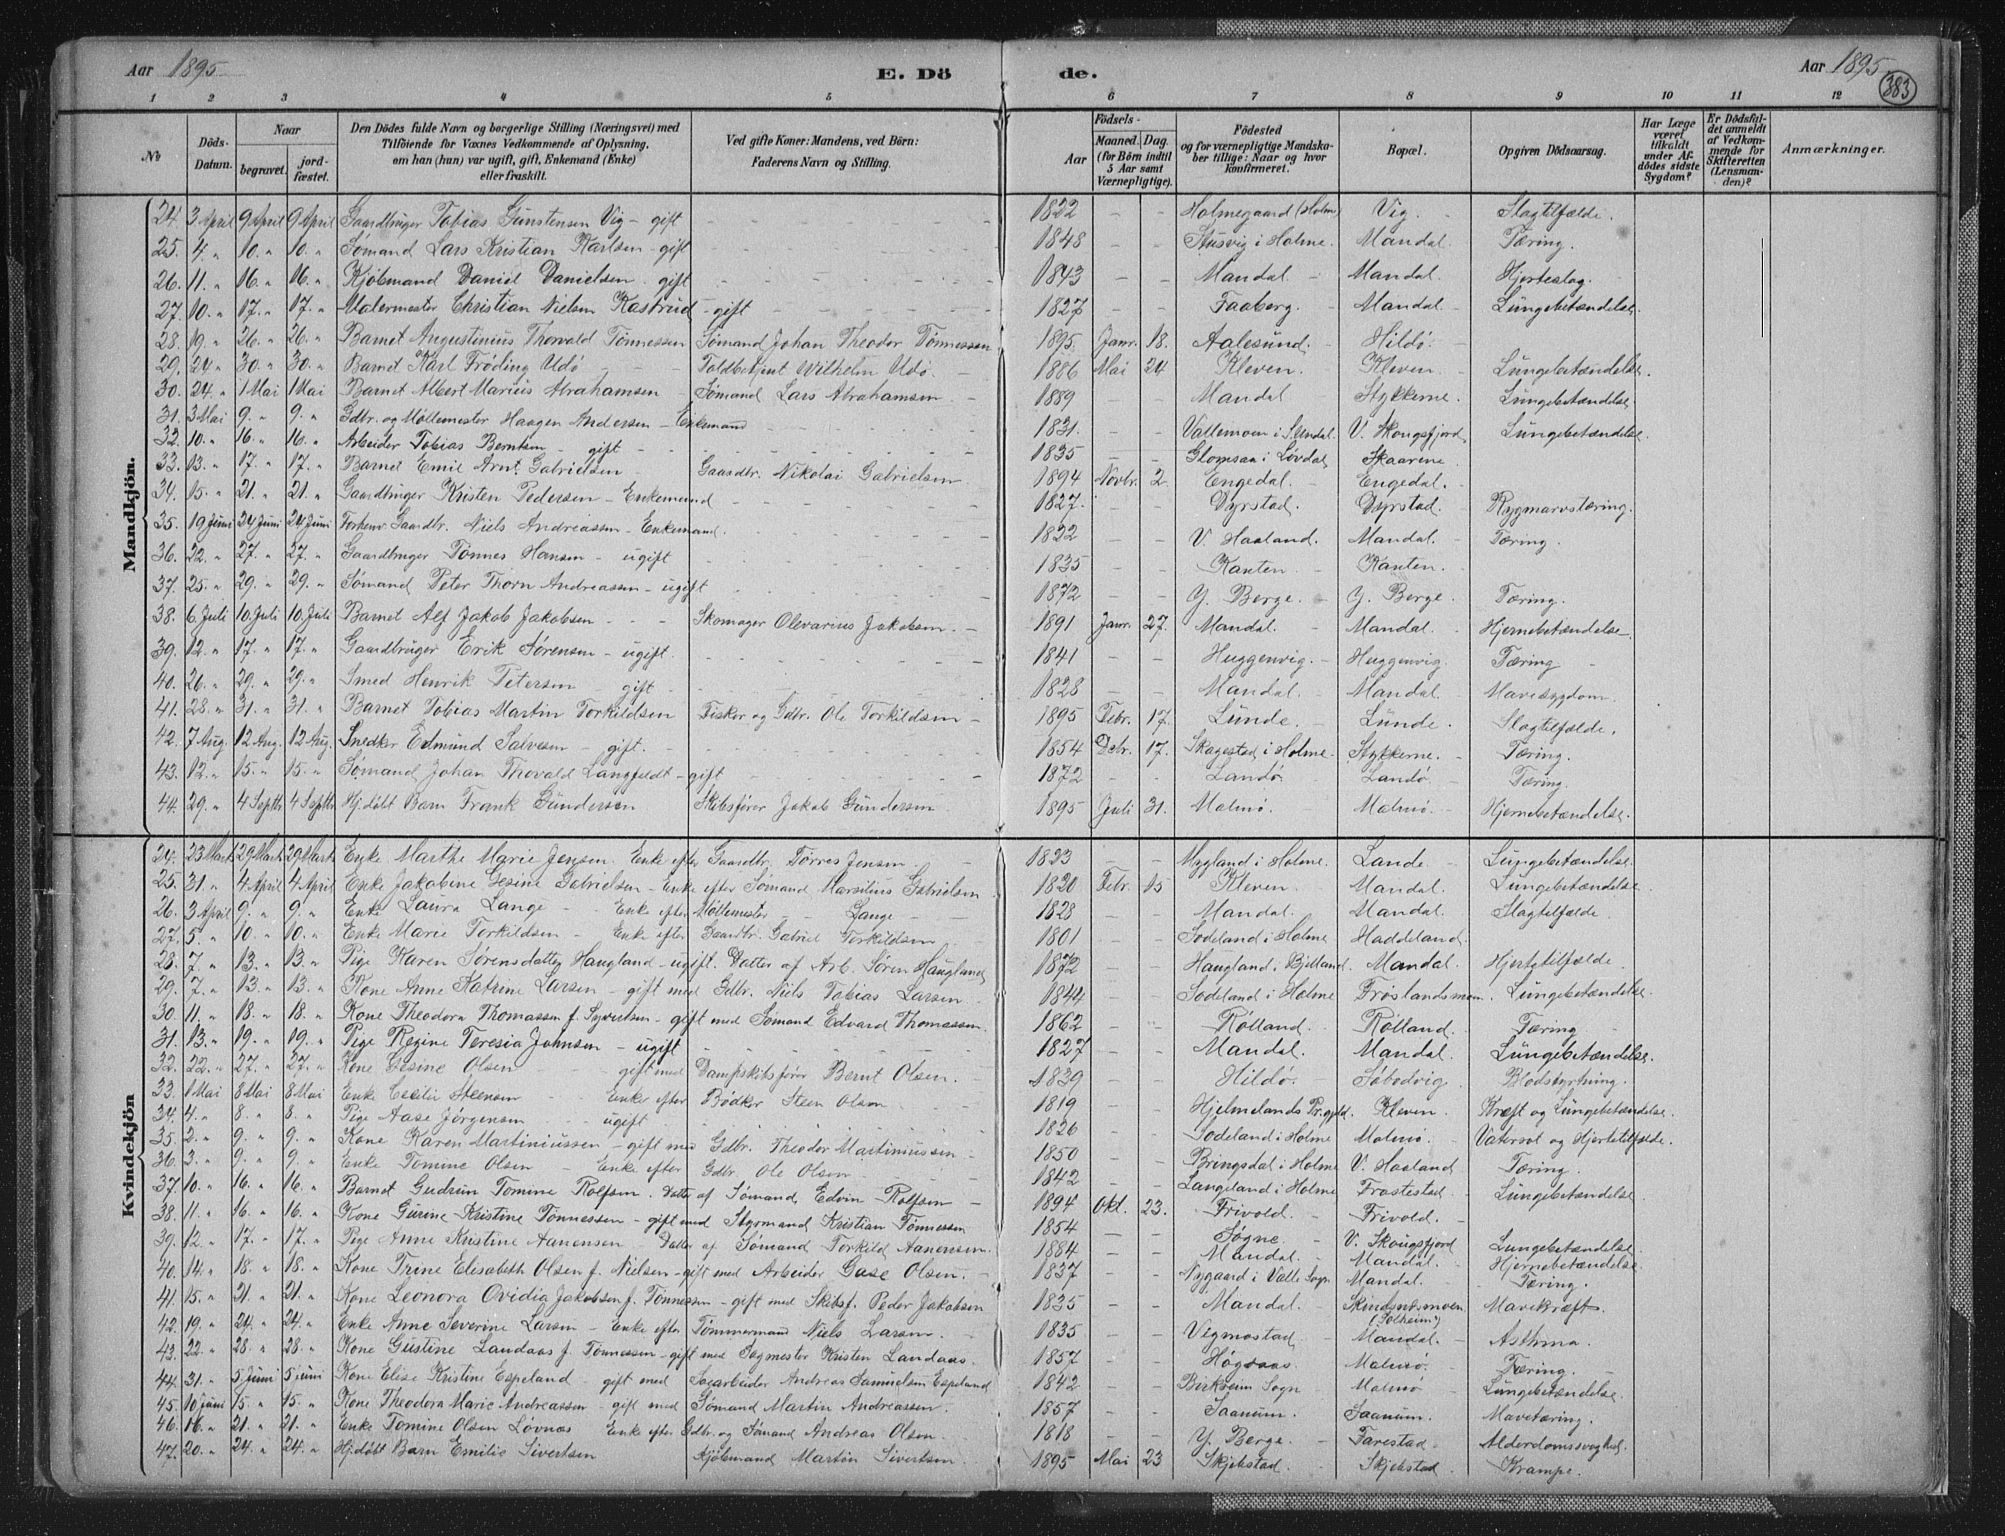 Aar 1895
E. Dö de.
Aar 1895
383
1 2 3 4 5 6 7 8 9 10 11 12
No
Döds-Datum.
Naar
begravet.
jord-fæstet.
Den Dödes fulde Navn og borgerlige Stilling (Næringsvei) med
Tilföiende for Voxnes Vedkommende af Oplysning,
om han (hun) var ugift, gift, Enkemand (Enke)
eller fraskilt.
Ved gifte Koner: Mandens, ved Börn:
Faderens Navn og Stilling.
Födsels-
Aar
Maaned. Dag.
(for Börn indtil
5 Aar samt
Værnepligtige).
Födested
og for værnepligtige Mandska-
ber tillige: Naar og hvor
konfirmeret.
Bopæl.
Opgiven Dödsaarsag.
Har Læge
været
tilkaldt
under Af-
dödes sidste
Sygdom?
Er Dödsfal-
det anmeldt
af Vedkom-
mende for
Skifteretten
(Lensman-
den)?
Anmærkninger.
Mandkjön.
24. 3 April 9 April 9 April Gaardbruger Tobias Gunstensen Vig - gift 1822 Holmegaard (Holme) Vig. Slagtilfælde.
25. 4. " 10. " 10. " Sømand Lars Kristian Karlsen - gift 1848 Stusvig i Holme. Mandal. Tæring.
26. 11. " 16. " 16. " Kjøbmand Daniel Danielsen gift 1843 Mandal Mandal. Hjerteslag.
27. 10. " 17. " 17. " Malermester Christian Nielsen Kastrud - gift 1827 Faaberg. Mandal. Lungebetændelse.
28. 19. " 26. " 26. " Barnet Augustinius Thorvald Tønnessen Sømand Johan Theodor Tønnessen 1895 Janr. 18. Aalesund. Hildö.
29. 24. " 30. " 30. " Barnet Karl Frøding Udö Toldbetjent Wilhelm Udö. 1886 Mai 24 Kleven. Kleven. Lungebetændelse.
30. 24. " 1 Mai 1 Mai Barnet Albert Marius Abrahamsen Sømand Lars Abrahamsen 1889 Mandal Stykkerne. Lungebetændelse
31. 3 Mai 9. " 9. " Gdbr. og Møllemester Haagen Andersen - Enkemand 1831. Vallemoen i S.undal. V. Skougsfjord. Lungebetændelse
32. 10. " 16. " 16. " Arbeider Tobias Berntsen gift 1835 Glomsaa i Løvdal Skaarene.
33. 13. " 17. " 17. " Barnet Emil Arnt. Gabrielsen Gaardbr. Nikolai Gabrielsen. 1894 Novbr. 2. Engedal. Engedal.
34. 15. " 21. " 21. " Gaardbruger Kristen Pedersen - Enkemand 1827. Dyrstad. Dyrstad. Rygmarvstæring.
35. 19 Juni 24 Juni 24 Juni Forhenv. Gaardbr. Niels Andreassen - Enkemand. 1822 V. Haaland. Mandal. Tæring.
36. 22. " 27. " 27. " Gaardbruger Tønnes Hansen - ugift 1835 Kanten. Kanten.
37. 25. " 29. " 29. " Sømand Peter Thorn Andreassen - ugift 1872 Y. Berge. Y. Berge. Tæring.
38. 6. Juli 10. Juli 10. Juli Barnet Alf Jakob Jakobsen Skomager Olevarius Jakobsen. 1891 Janr. 27. Mandal. Mandal. Hjernebetændelse
39. 12. " 17. " 17. " Gaardbruger Erik Sørensen - ugift. 1841 Huggenvig. Huggenvig. Tæring
40. 26. " 29. " 29. " Smed Henrik Petersen gift 1828 Mandal. Mandal. Mavesygdom.
41. 28. " 31. " 31. " Barnet Tobias Martin Torkildsen Fisker og Gdbr. Ole Torkildsen 1895 Febr. 17. Lunde. Lunde. Slagtilfælde.
42. 7 Aug. 12 Aug. 12 Aug. Snedker Edmund Salvesen - gift. 1854 Debr. 17. Skagestad i Holme. Stykkerne. Tæring.
43. 12. " 15. " 15. " Sømand Johan Thovald Langfeldt - gift 1872 Landö. Landö. Tæring.
44. 29. " 4 Septbr 4 Septbr Hjdøbt Barn Frank Gundersen Skibsfører Jakob Gundersen 1895 Juli 31. Malmö. Malmö. Hjernebetændelse.
Kvindekjön
24. 23 Marts 29 Marts 29 Marts Enke Marthe Marie Jensen. Enke efter Gaardbr. Tørres Jensen. 1823 Mygland i Holme. Lande Lungebetændelse
25. 31. " 4 April 4 April Enke Jakobine Gesine Gabrielsen - Enke efter Sømand Marsilius Gabrielsen 1820 Febr. 15 Kleven. Mandal. Lungebetændelse.
26. 3 April 9. " 9. " Enke Laura Lange Enke efter Møllemester Lange 1828 Mandal. Mandal. Slagtilfælde.
27. 5. " 10. " 10. " Enke Marie Torkildsen Enke efter Gaardbr. Gabriel Torkildsen 1801 Sodeland i Holme Haddeland.
28. 7. " 13. " 13. " Pige Karen Sørensdatter Haugland - ugift. Datter af Arb. Søren Haugland 1872 Haugland i Bjelland. Mandal. Hjertetilfælde.
29. 7. " 13. " 13. " Kone Anne Katrine Larsen - gift med Gdbr. Niels Tobias Larsen. 1844 Sodeland i Holme Frøslandsmoen. Lungebetændelse.
30. 11. " 18. " 18. " Kone Theodora Thomassen f. Syvertsen - gift med Sømand Edvard Thomassen. 1862 Rølland. Rølland. Tæring
31. 13. " 19. " 19. " Pige Regine Teresia Johnsen - ugift 1827 Mandal. Mandal. Lungebetændelse.
32. 22. " 27. " 27. " Kone Gesine Olsen gift med Dampskibsfører Bernt Olsen. 1839 Hildö. Søbodvig. Blodstyrtning.
33. 1 Mai 8 Mai 8 Mai Enke Cecilie Steensen Enke efter Bødker Steen Olsen 1819 Hjelmelands Pr.gjeld. Kleven. Kræft og Lungebetændelse.
34. 4. " 8. " 8. " Pige Aase Jørgensen ugift 1826 Sodeland i Holme Malmö. Vatersot og Hjertetilfælde.
35. 2. " 9. " 9. " Kone Karen Martiniussen - gift med Gdbr. Theodor Martiniussen 1850 Bringsdal i Holme V. Haaland Tæring.
36. 3. " 9. " 9. " Enke Tomine Olsen Enke efter Gdbr. Ole Olsen 1842 Langeland i Holme Frostestad. Lungebetændelse
37. 10. " 16. " 16. " Barnet Gudrun Tomine Rolfsen. Datter af Sømand Edvin Rolfsen 1894 Okt. 23. Frivold. Frivold.
38. 11. " 16. " 16. " Kone Gurine Kristine Tønnessen - gift med Styrmand Kristian Tønnessen 1854 Søgne. V. Skougsfjord Lungebetændelse.
39. 12. " 17. " 17. " Pige Anne Kristine Aanensen Datter af Sømand Torkild Aanensen. 1884 Mandal. Mandal. Hjernebetændelse
40. 14. " 18. " 18. " Kone Trine Elisabeth Olsen f. Nielsen - gift med Arbeider Olsen. 1837 Nygaard i Valle Sogn Mandal. Tæring.
41. 15. " 21. " 21. " Kone Leonora Ovidia Jakobsen f. Tønnessen - gift med Skibsf. Peder Jakobsen 1835 Mandal. Skindsnesmoen (Solheim) Mavekræft.
42. 19. " 24. " 24. " Enke Anne Severine Larsen - Enke efter Tømmermand Niels Larsen. 1835 Vigmostad. Mandal. Asthma.
43. 22. " 28. " 28. " Kone Gustine Landaas f. Tønnessen - gift med Sagmester Kristen Landaas. 1857 Høgsaas. Malmö. Tæring.
44. 31. " 5 Juni 5 Juni Kone Elise Kristine Espeland - gift med Andreas Samuelsen Espeland 1842 Birkreim Sogn Malmö Lungebetændelse.
45. 10 Juni 15. " 15. " Kone Theodora Marie Andreassen - gift med Sømand Martin Andreassen. 1857 Saanum. Saanum. Mavetæring.
46. 16. " 21. " 21. " Enke Tomine Olsen Løvnæs Enke efter Gdbr. og Sømand Andreas Olsen 1818 Y. Berge. Farestad. Alderdomssvaghed.
47. 20. " 24. " 24. " Hjdøbt Barn Emilie Sivertsen Kjøbmand Martin Sivertsen. 1895 Mai 23 Skjebstad. Skjebstad Krampe.